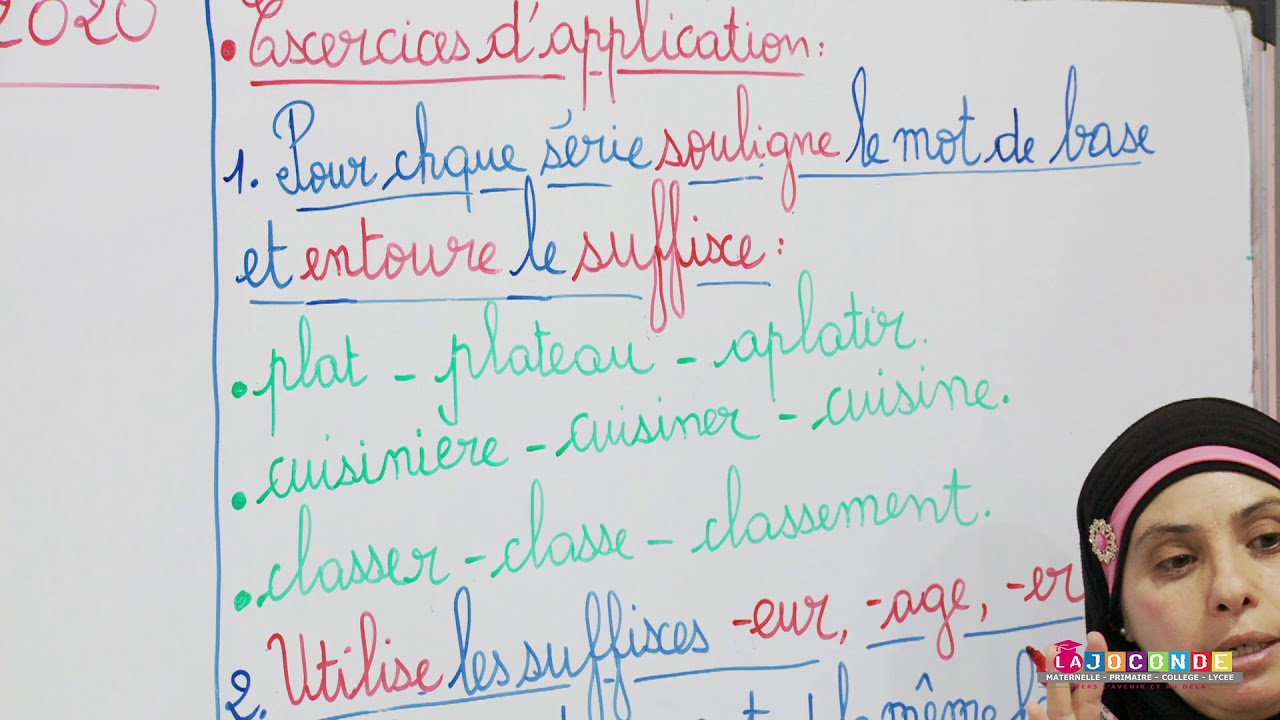 2020
• Exercices d'application:
1. Pour chque série souligne le mot de base
et entoure le suffixe:
• plat - plateau - aplatir.
• cuisinière - cuisiner - cuisine.
• classer - classe - classement.
2. Utilise les suffixes -eur, -age, -er
le même
LAJOCONDE
MATERNELLE - PRIMAIRE - COLLEGE - LYCEE
VERS L'AVENIR ET AU DELA